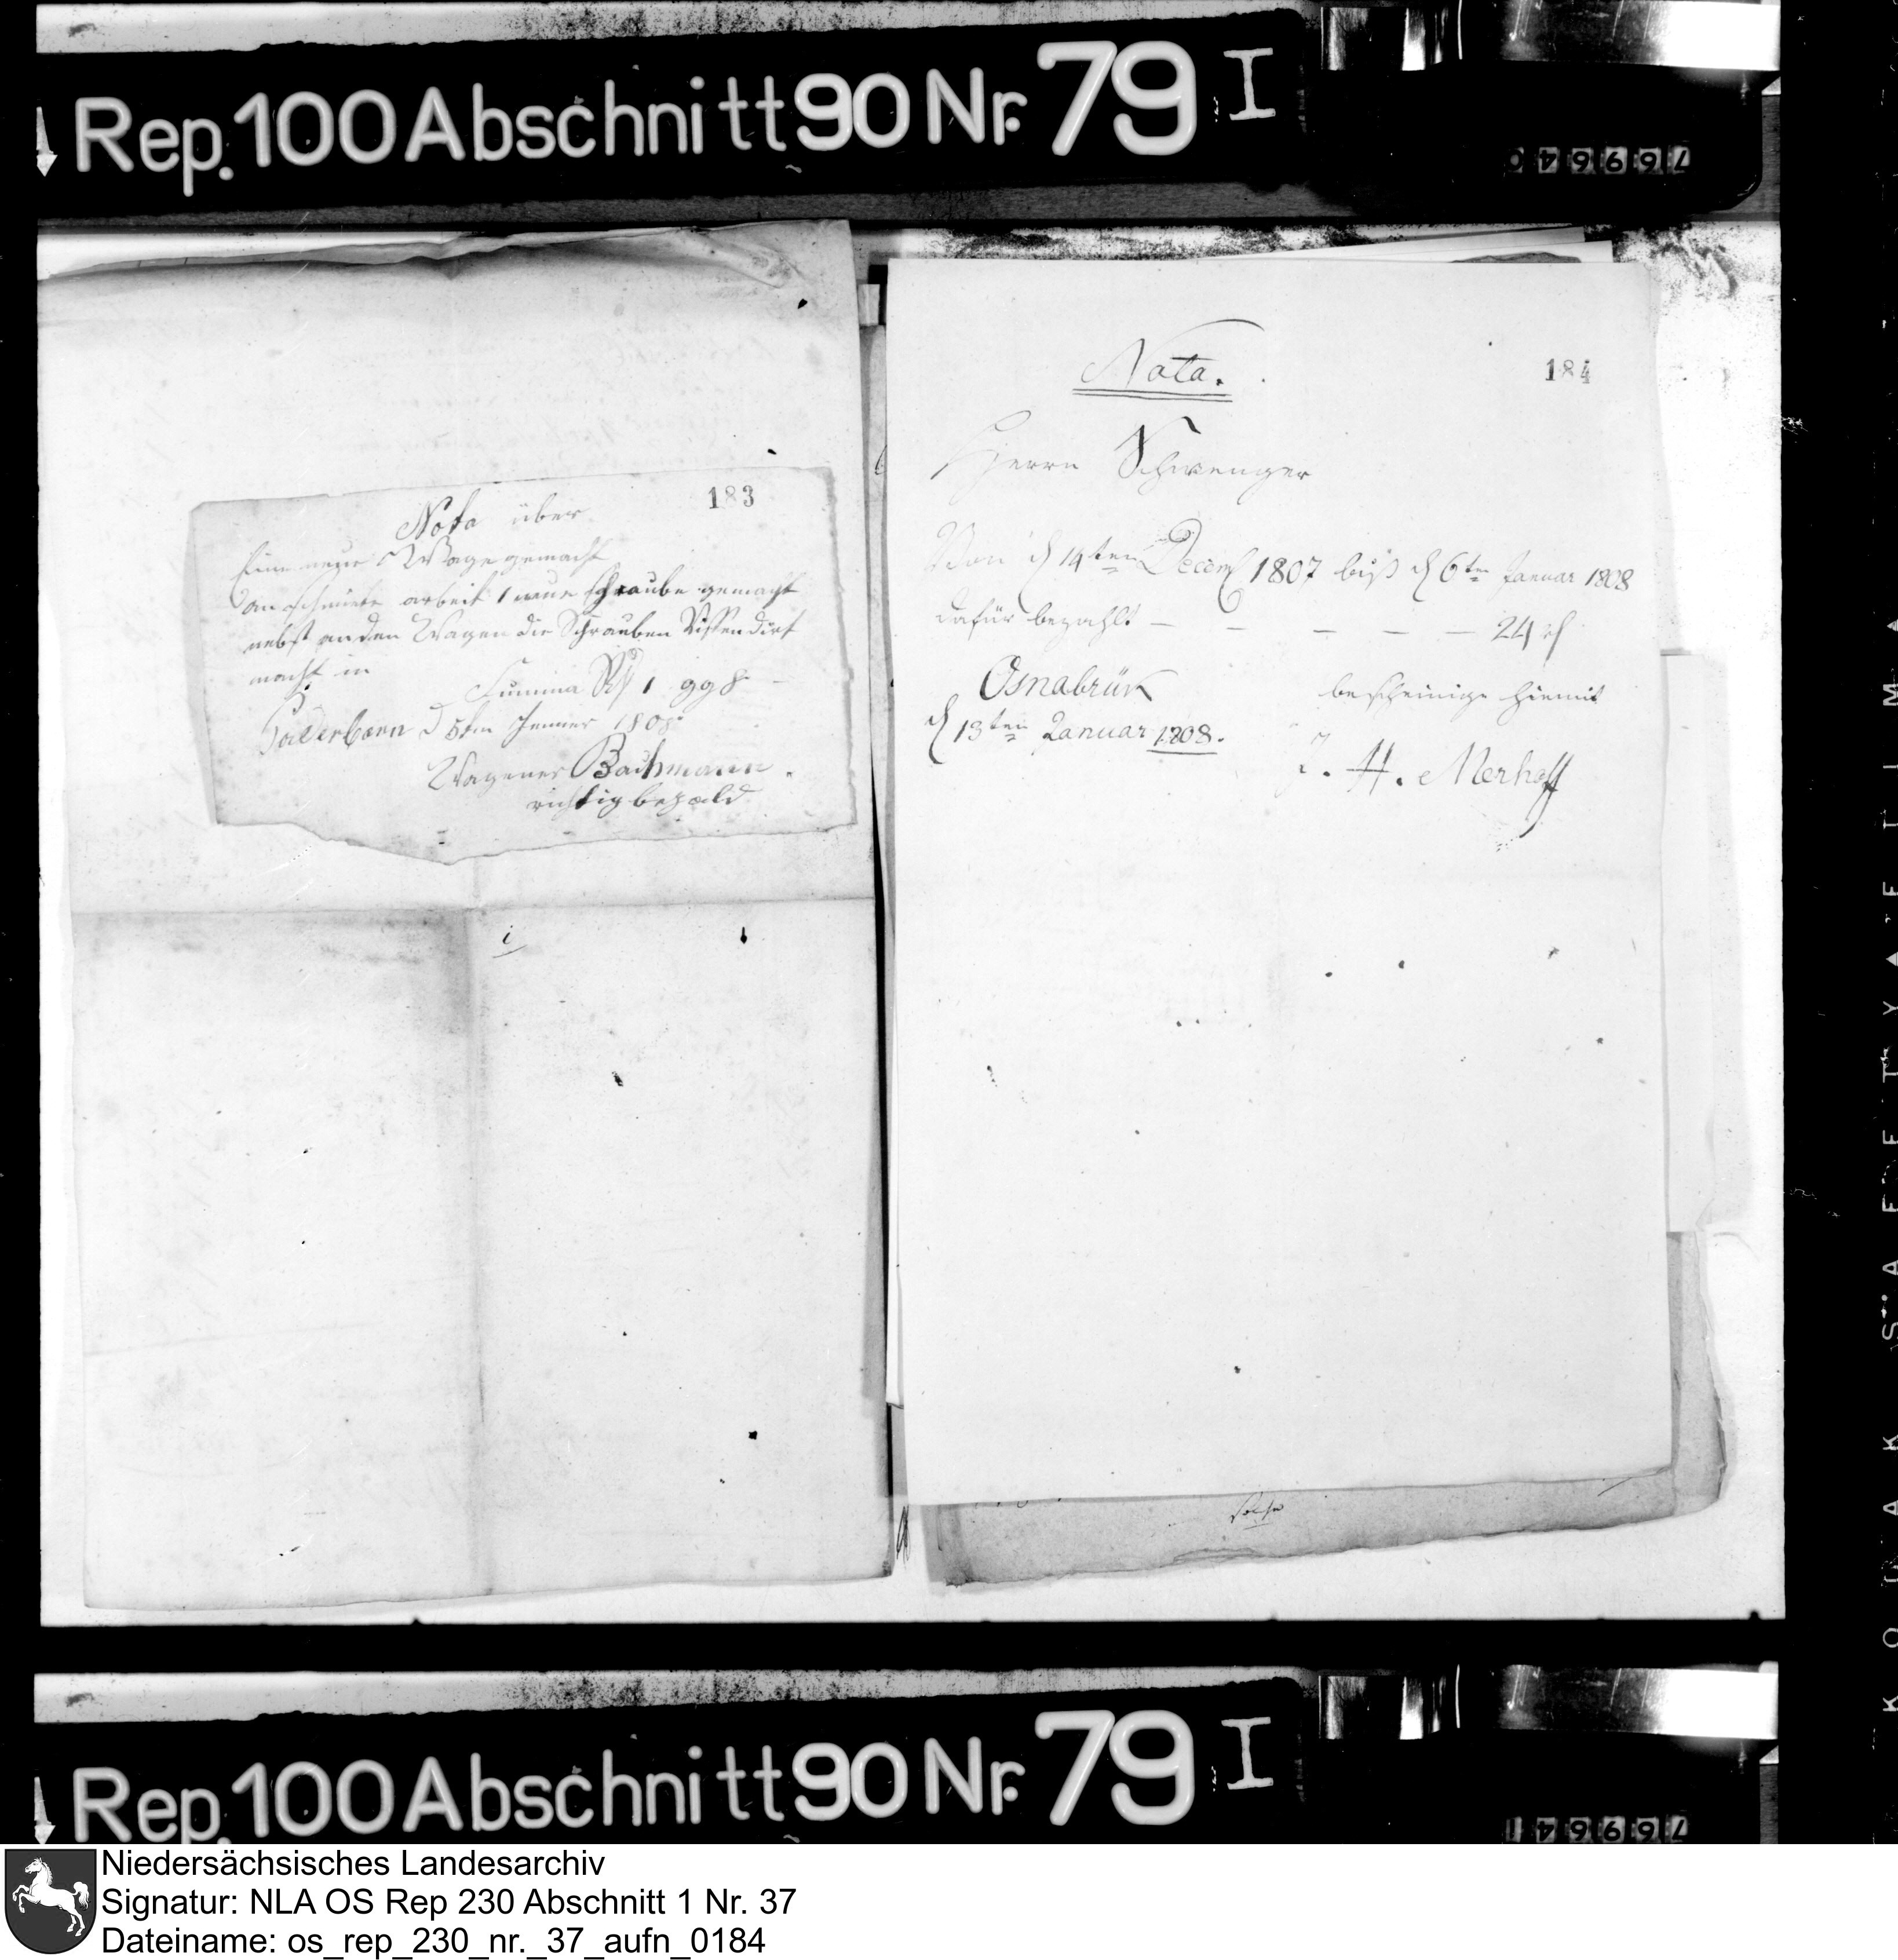 Rep. 100 Abschnitt 90 Nr. 79 I
769640
183
Nota über
Eine neue Wage gemacht
an schmiete arbeit 1 neue schraube gemacht
nebst an den Wagen die Schrauben
macht in
Summa Rth 1 gg 8
Paderborn d 5tm Jenner 1808
Wagener Bachmann.
richtig bezald
184
Nota.
Herrn Schwenger
Von d 14ten Decem 1807 biß d 6ten Januar 1808
dafür bezahlt — — — — — 24 rh
Osnabrük
bescheinige hiemit
d 13ten Januar 1808.
J. H. Merhoff
Rep. 100 Abschnitt 90 Nr. 79 I
769641
Niedersächsisches Landesarchiv
Signatur: NLA OS Rep 230 Abschnitt 1 Nr. 37
Dateiname: os_rep_230_nr._37_aufn_0184